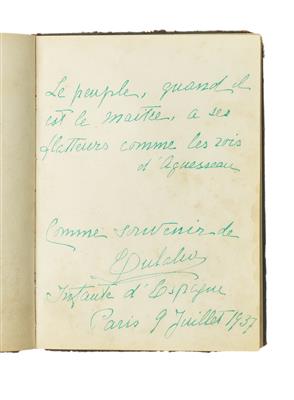 Le peuple, quand il
est le maitre, a ses
flatteurs comme les rois
d'Aguesseau
Comme souvenir de
Eulalia
Infante d'Espagne
Paris 9 Juillet 1937